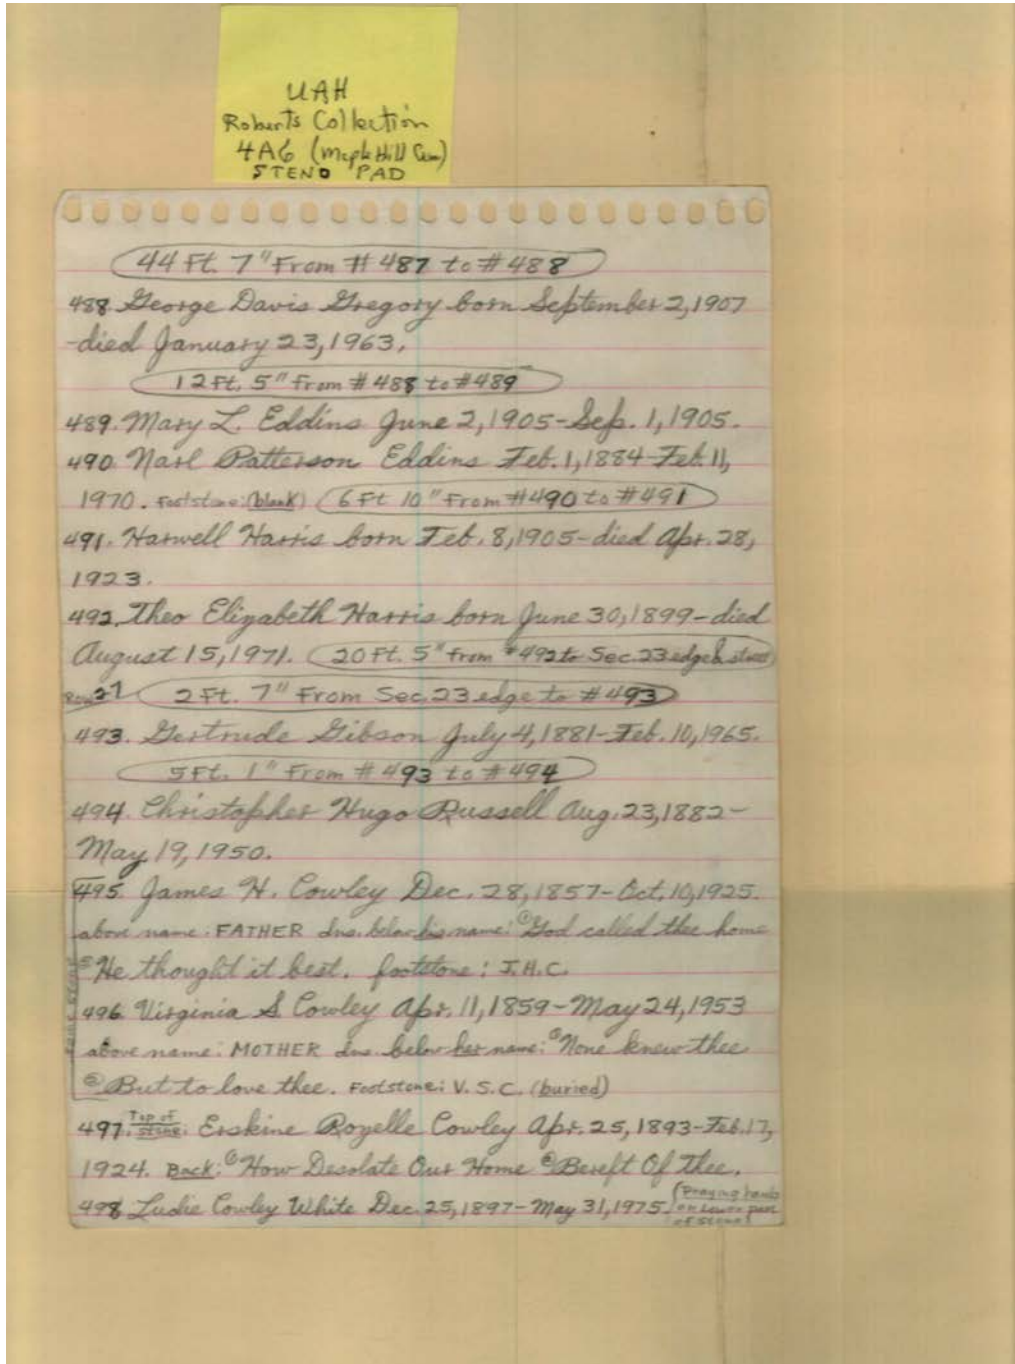 UAH
Roberts Collection
4A6 (Maple Hill Cem)
STENO PAD
44 Ft. 7" From #487 to #488
488. George Davis Gregory born September 2, 1907
-died January 23, 1963.
12 Ft. 5" From #488 to #489
489. Mary L. Eddins June 2, 1905-Sep. 1, 1905.
490. Narl Patterson Eddins Feb. 1, 1884-Feb. 11,
1970. Footstone: (blank) 6 Ft 10" From #490 to #491
491. Harwell Harris born Feb. 8, 1905-died Apr. 28,
1923.
492. Theo Elizabeth Harris born June 30, 1899-died
August 15, 1971. 20 Ft. 5" from #492 to Sec. 23 edge & street
Row 27 2 Ft. 7" From Sec. 23 edge to #493
493. Gertrude Gibson July 4, 1881-Feb. 10, 1965.
5 Ft. 1" From #493 to #494
494. Christopher Hugo Russell Aug. 23, 1882-
May 19, 1950.
495. James H. Cowley Dec. 28, 1857-Oct. 10, 1925.
above name: FATHER ins. below his name: ① God called thee home
② He thought it best. footstone: J.H.C.
496. Virginia S Cowley Apr. 11, 1859-May 24, 1953
above name: MOTHER ins. below her name: ① None knew thee
② But to love thee. Footstone: V.S.C. (buried)
497. Top of stone: Erskine Rozelle Cowley Apr. 25, 1893-Feb. 17,
1924. Back: ① How Desolate Our Home ② Bereft Of Thee.
498 Ludie Cowley White Dec. 25, 1897-May 31, 1975 (Praying hands
on lower part
of stone)